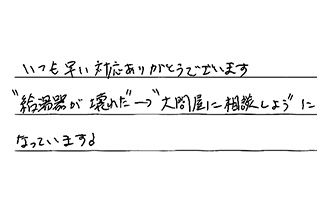 いつも早い対応ありがとうございます
"給湯器が壊れた"→"大問屋に相談しよう"に
なっています♪